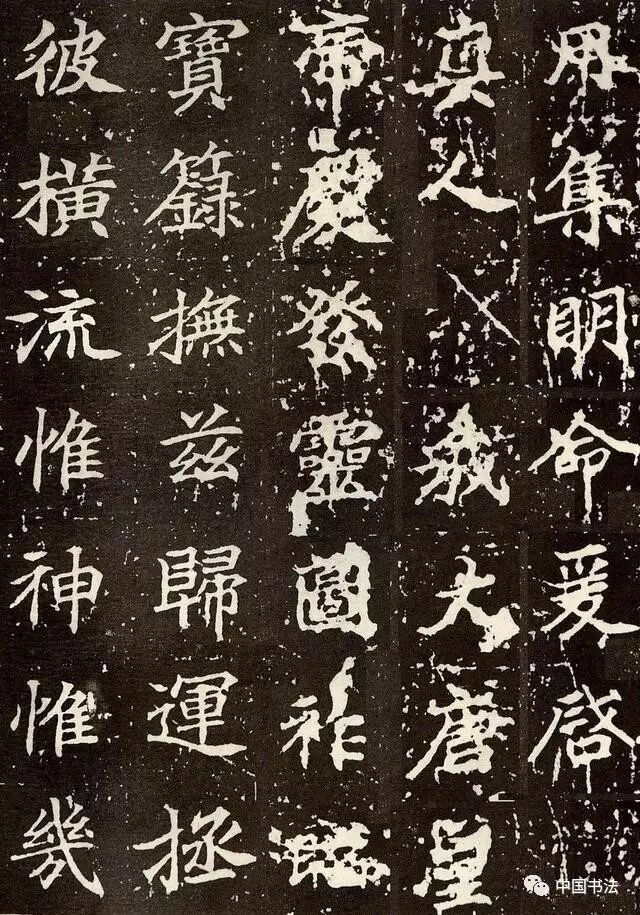 用集明命爰啓
真人我大唐皇
帝厥發靈圖祚
寶籙撫茲歸運拯
彼橫流惟神惟幾
中国书法